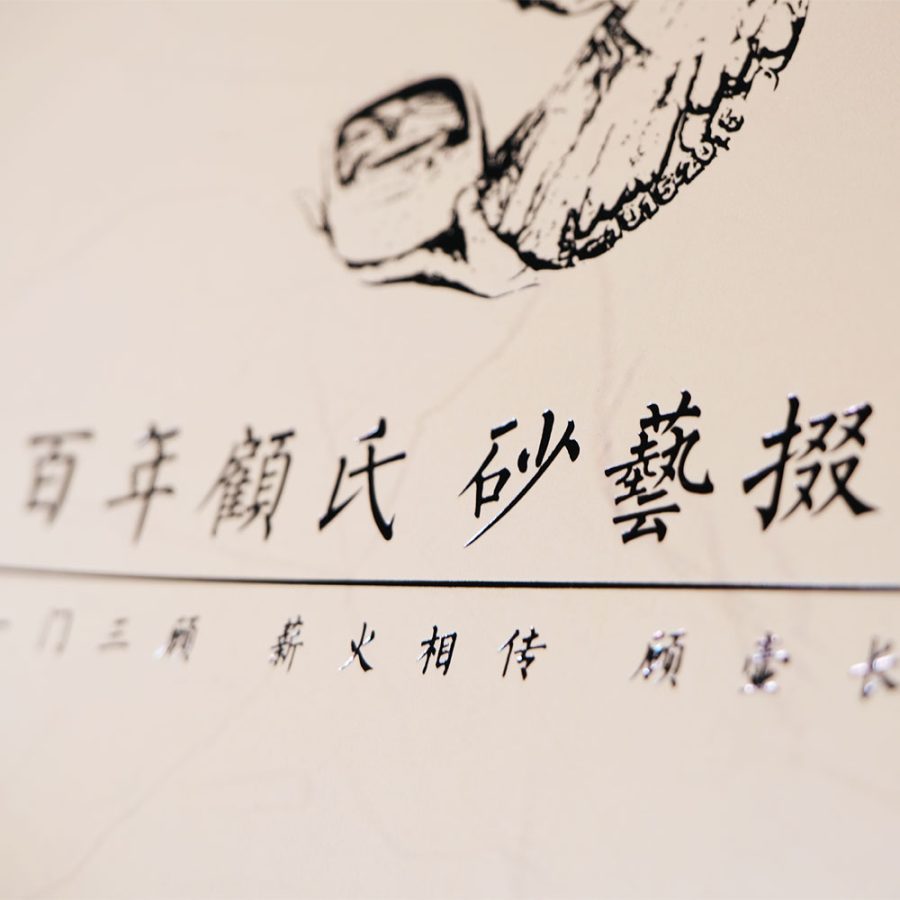 1915-2015
百年顧氏 砂藝掇
一门三顾 薪火相传 顾壶长